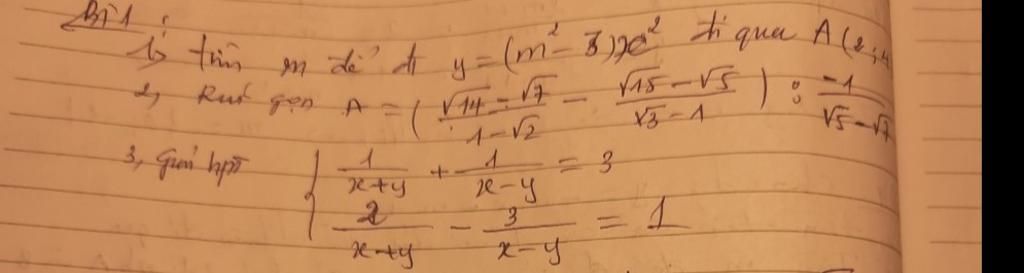 Bài 1 :
1, tìm m để đt y = (m² - 3)x² đi qua A(2;4
2, Rút gọn A = ( (√14 - √7)/(1 - √2) - (√15 - √5)/(√3 - 1) ) : (-1)/(√5 - √7)
3, Giải hpt { 1/(x+y) + 1/(x-y) = 3
2/(x+y) - 3/(x-y) = 1